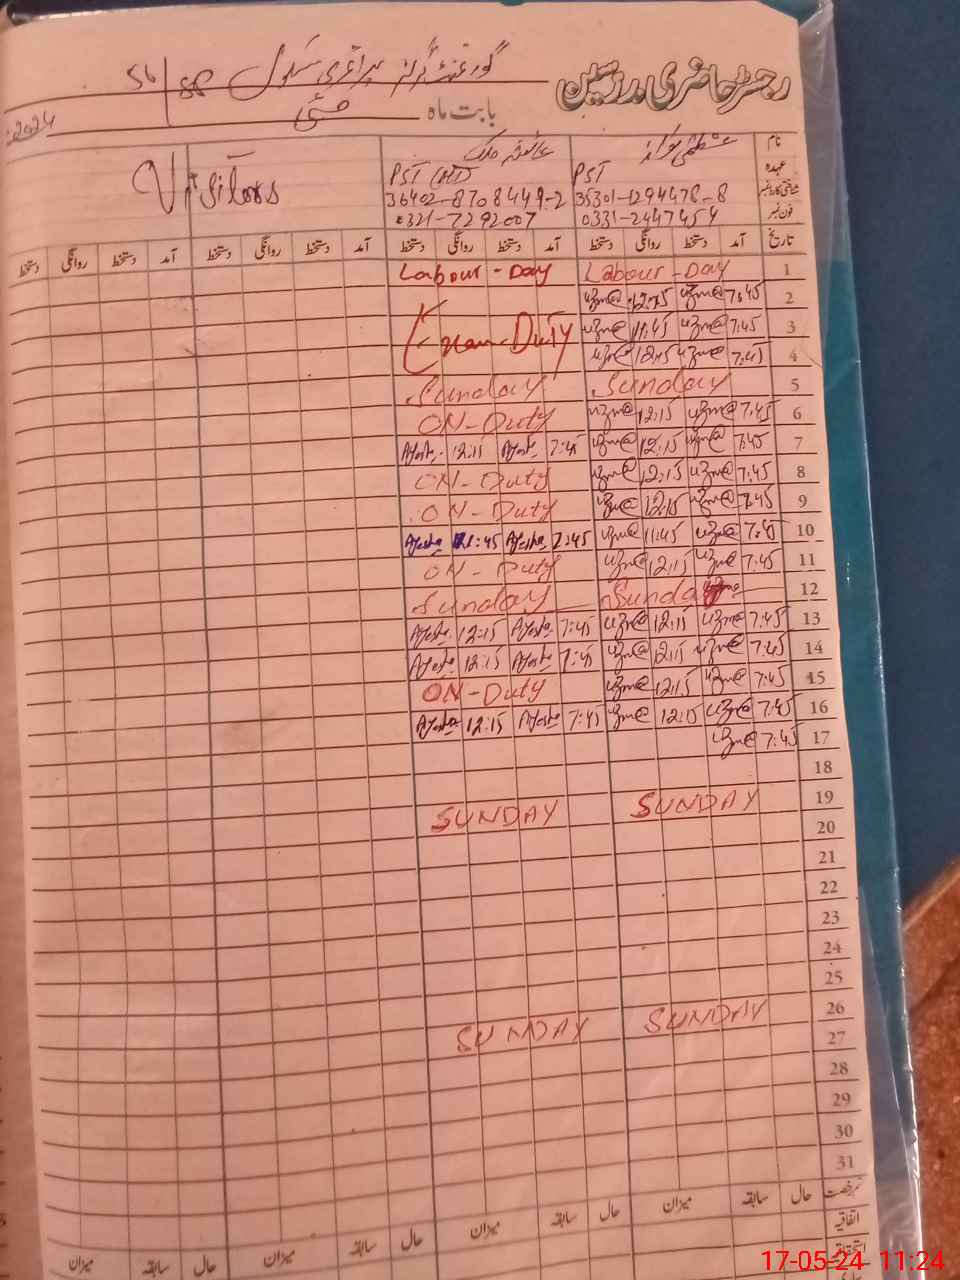 رجسٹر حاضری مدرسین
گورنمنٹ گرلز پرائمری سکول 56/SP
بابت ماہ مئی 2024
نام عظمیٰ نواز عائشہ ملک Visitors
عہدہ PST PST (HT)
شناختی کارڈ نمبر 35301-1294478-8 36402-8708449-2
فون نمبر 0331-2447454 0321-7292007
تاریخ آمد دستخط روانگی دستخط آمد دستخط روانگی دستخط آمد دستخط روانگی دستخط آمد دستخط روانگی دستخط
1 Labour-Day Labour-Day
2 7:45 12:15
3 7:45 11:45 Duty
4 7:45 12:15
5 Sunday Sunday
6 7:45 12:15 ON-Duty
7 7:45 12:15 7:45 Ayesha 12:15 Ayesha
8 7:45 12:15 ON-Duty
9 7:45 12:15 ON-Duty
10 7:45 11:45 7:45 Ayesha 11:45 Ayesha
11 7:45 12:15 ON-Duty
12 Sunday Sunday
13 7:45 12:15 7:45 Ayesha 12:15 Ayesha
14 7:45 12:15 7:45 Ayesha 12:15 Ayesha
15 7:45 12:15 ON-Duty
16 7:45 12:15 7:45 Ayesha 12:15 Ayesha
17 7:45
18
19 SUNDAY SUNDAY
20
21
22
23
24
25
26 SUNDAY SUNDAY
27
28
29
30
31
حال سابقہ میزان حال سابقہ میزان حال سابقہ میزان حال سابقہ میزان
اتفاقیہ
17-05-24 11:24